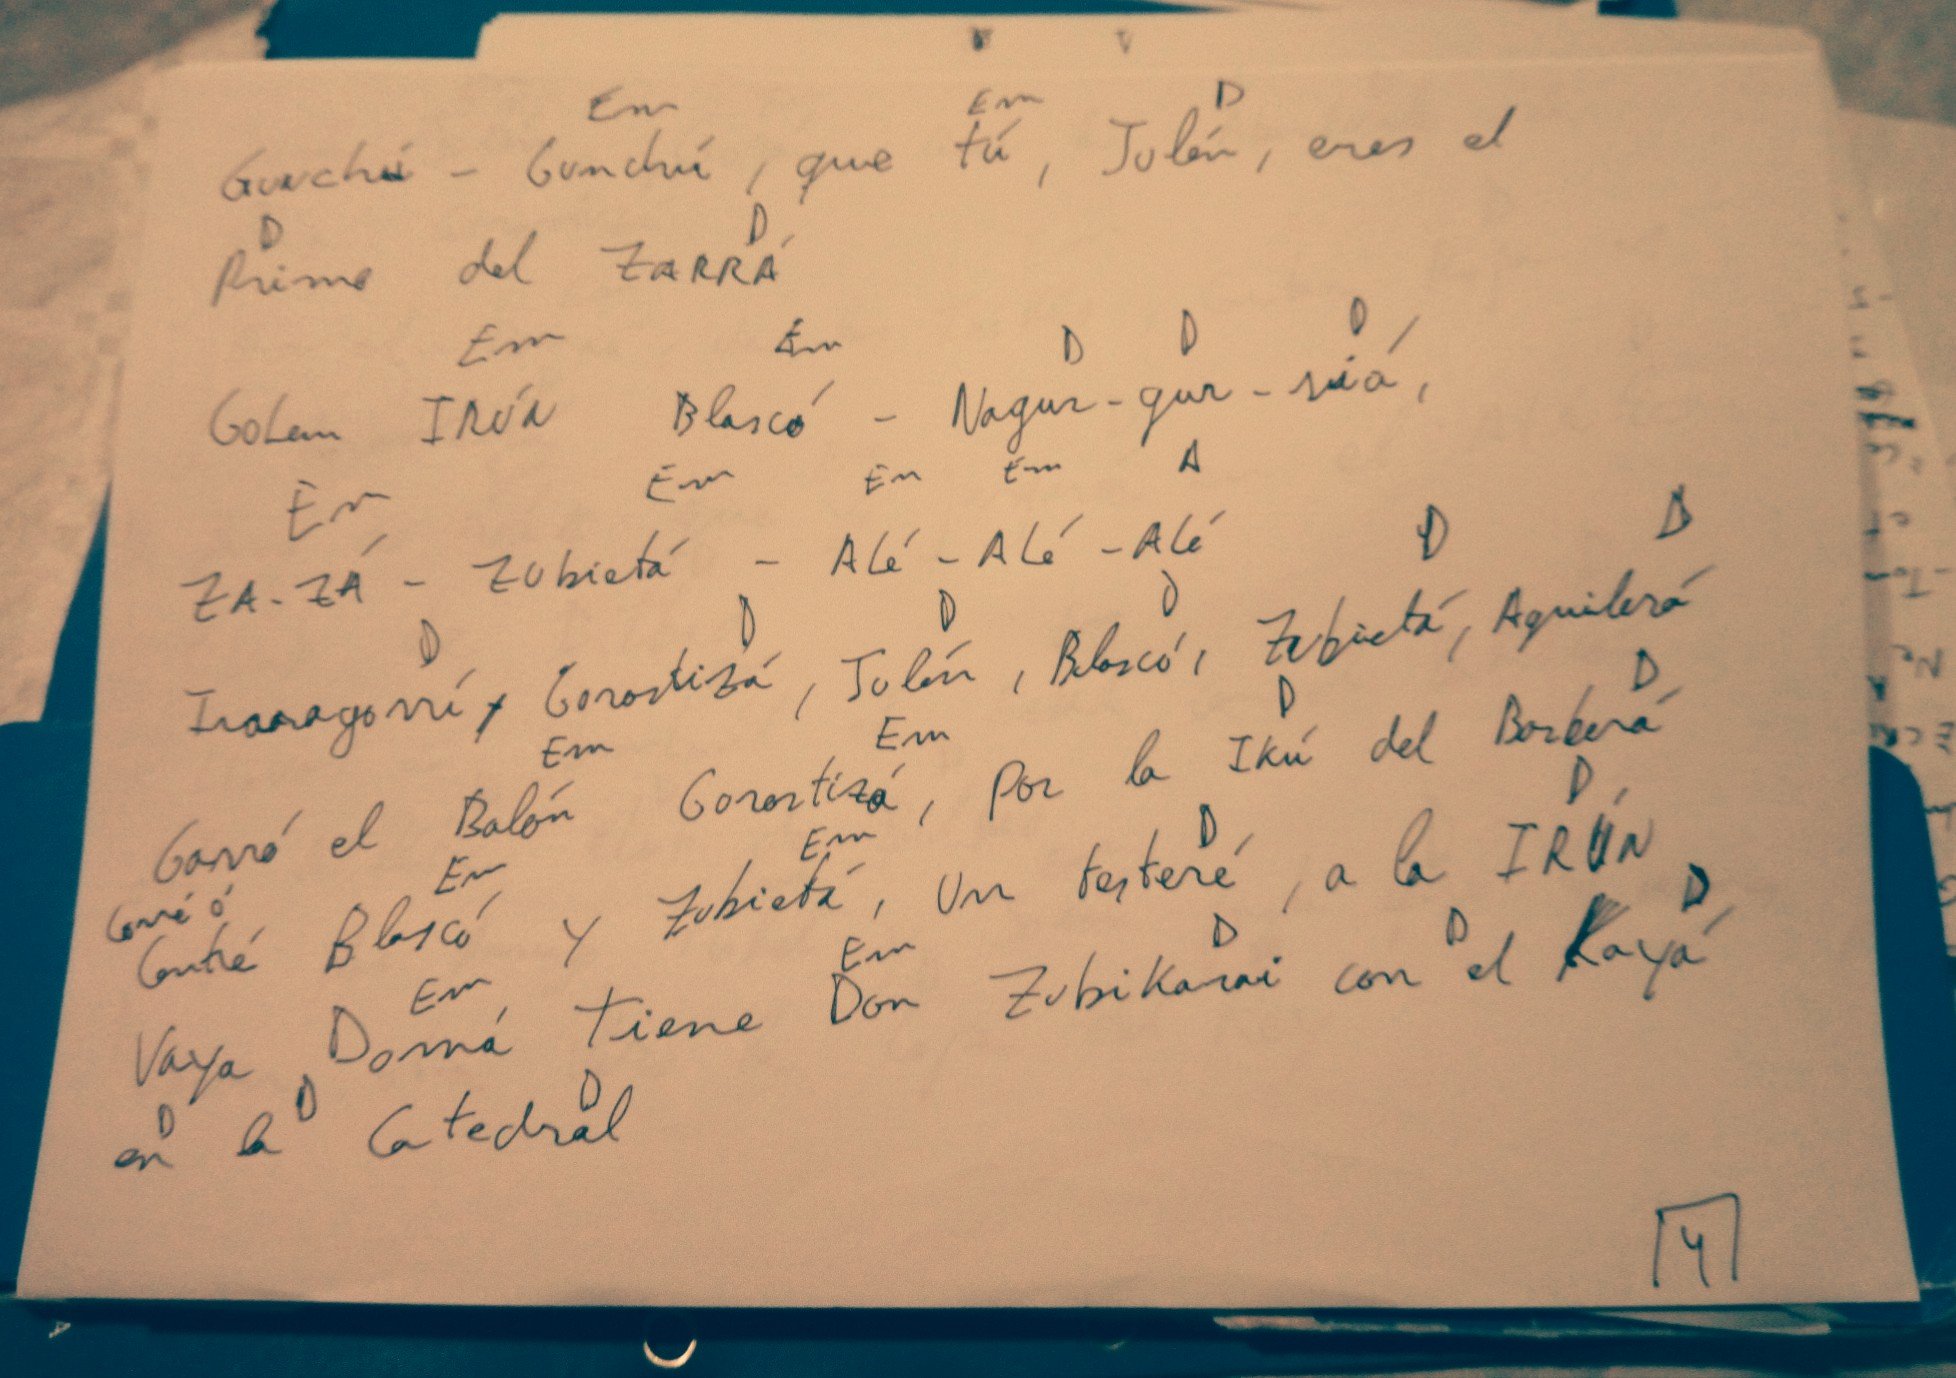 Em Em D
Gunchú - Gunchú, que tú, Julén, eres el
D D
Primo del ZARRÁ
Em Em D D D
GoLem IRÚN Blascó - Nagur-gur-niá,
Em Em Em Em A
ZA-ZÁ - Zubietá - ALé - ALé - ALé
D D D D D D
Iraragorrí, Gorostizá, Julén, Blascó, Zubietá, Aguilerá
Em Em D D
Garró el Balón Gorostizá, por la IKú del Barberá
Em Em D D
Contré Blascó y Zubietá, un testeré, a la IRÚN
Em Em D D D
Vaya Domá tiene Don Zubikarai con el Kayá
D D D
en la Catedrál
4